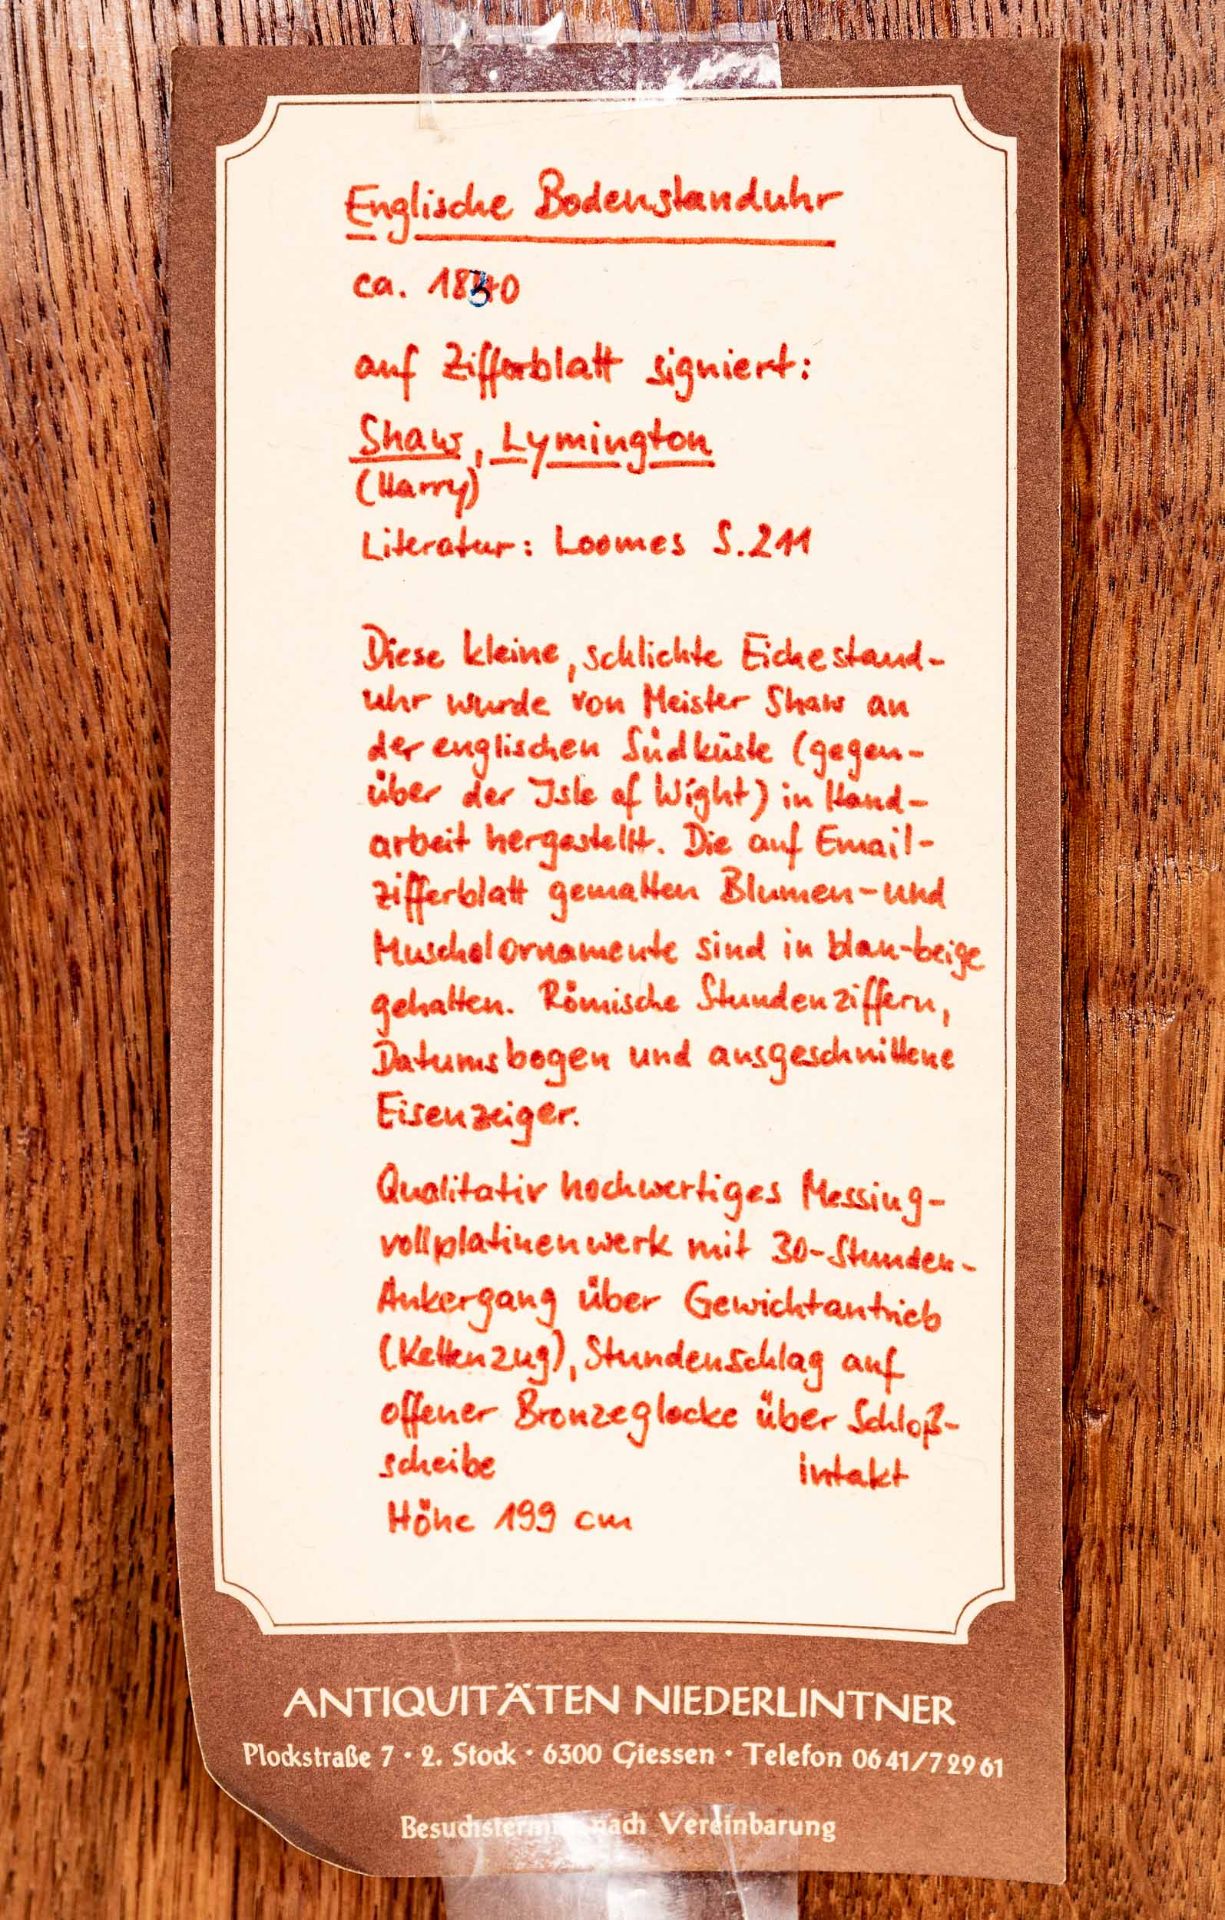 Englische Bodenstanduhr
ca. 1830
auf Zifferblatt signiert:
Shaw, Lymington
(Harry)
Literatur: Loomes S.211
Diese kleine, schlichte Eichestand-
uhr wurde von Meister Shaw an
der englischen Südküste (gegen-
über der Isle of Wight) in Hand-
arbeit hergestellt. Die auf Email-
zifferblatt gemalten Blumen-und
Muschelornamente sind in blau-beige
gehalten. Römische Stundenziffern,
Datumsbogen und ausgeschnittene
Eisenzeiger.
Qualitativ hochwertiges Messing-
vollplatinenwerk mit 30-Stunden-
Ankergang über Gewichtantrieb
(Kettenzug), Stundenschlag auf
offener Bronzeglocke über Schloß-
scheibe intakt
Höhe 199 cm
ANTIQUITÄTEN NIEDERLINTNER
Plockstraße 7 · 2. Stock · 6300 Giessen · Telefon 06 41/7 29 61
Besuchstermine nach Vereinbarung